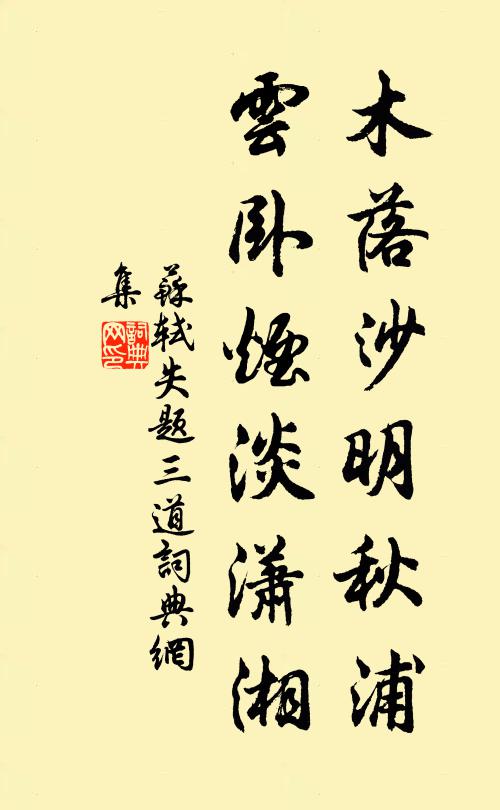 木落沙明秋浦
雲臥煙淡瀟湘
蘇軾失題三道詞典網
集
詞典
网印